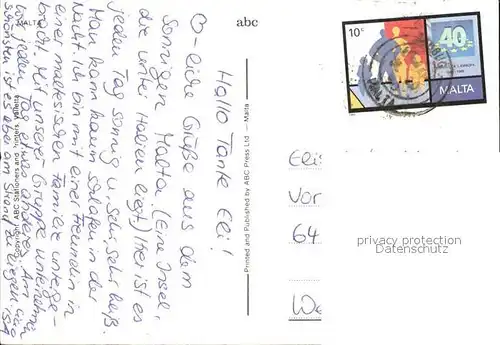 abc
MALTA
Hallo Tante Eli!
♡-liche Grüße aus dem
Sonnigen Malta. (Eine Insel,
die unter Italien liegt) Hier ist es
jeden Tag sonnig u. sehr, sehr heiß.
Man kann kaum schlafen in der
Nacht. Ich bin mit einer Freundin in
einer maltesischen Familie unterge-
bracht. Mit unserer Gruppe unternehmen
wir jeden Tag etwas. Am
schönsten ist es aber am Strand zu liegen
Printed and Published by ABC Press Ltd — Malta
10c
40
MALTA
Elis
Vor
64
We
privacy protection
oldthing.com